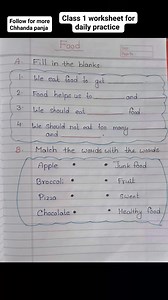 Follow for more
Chhanda panja
Class 1 worksheet for
daily practice
Food
A. Fill in the blanks.
1. We eat food to get
2. Food helps us to and
3. We should eat food
4. We should not eat too many
and
B. Match the words with the words
Apple • • Junk Food
Broccoli • • Fruit
Pizza • • Sweet
Chocolate • • Healthy food